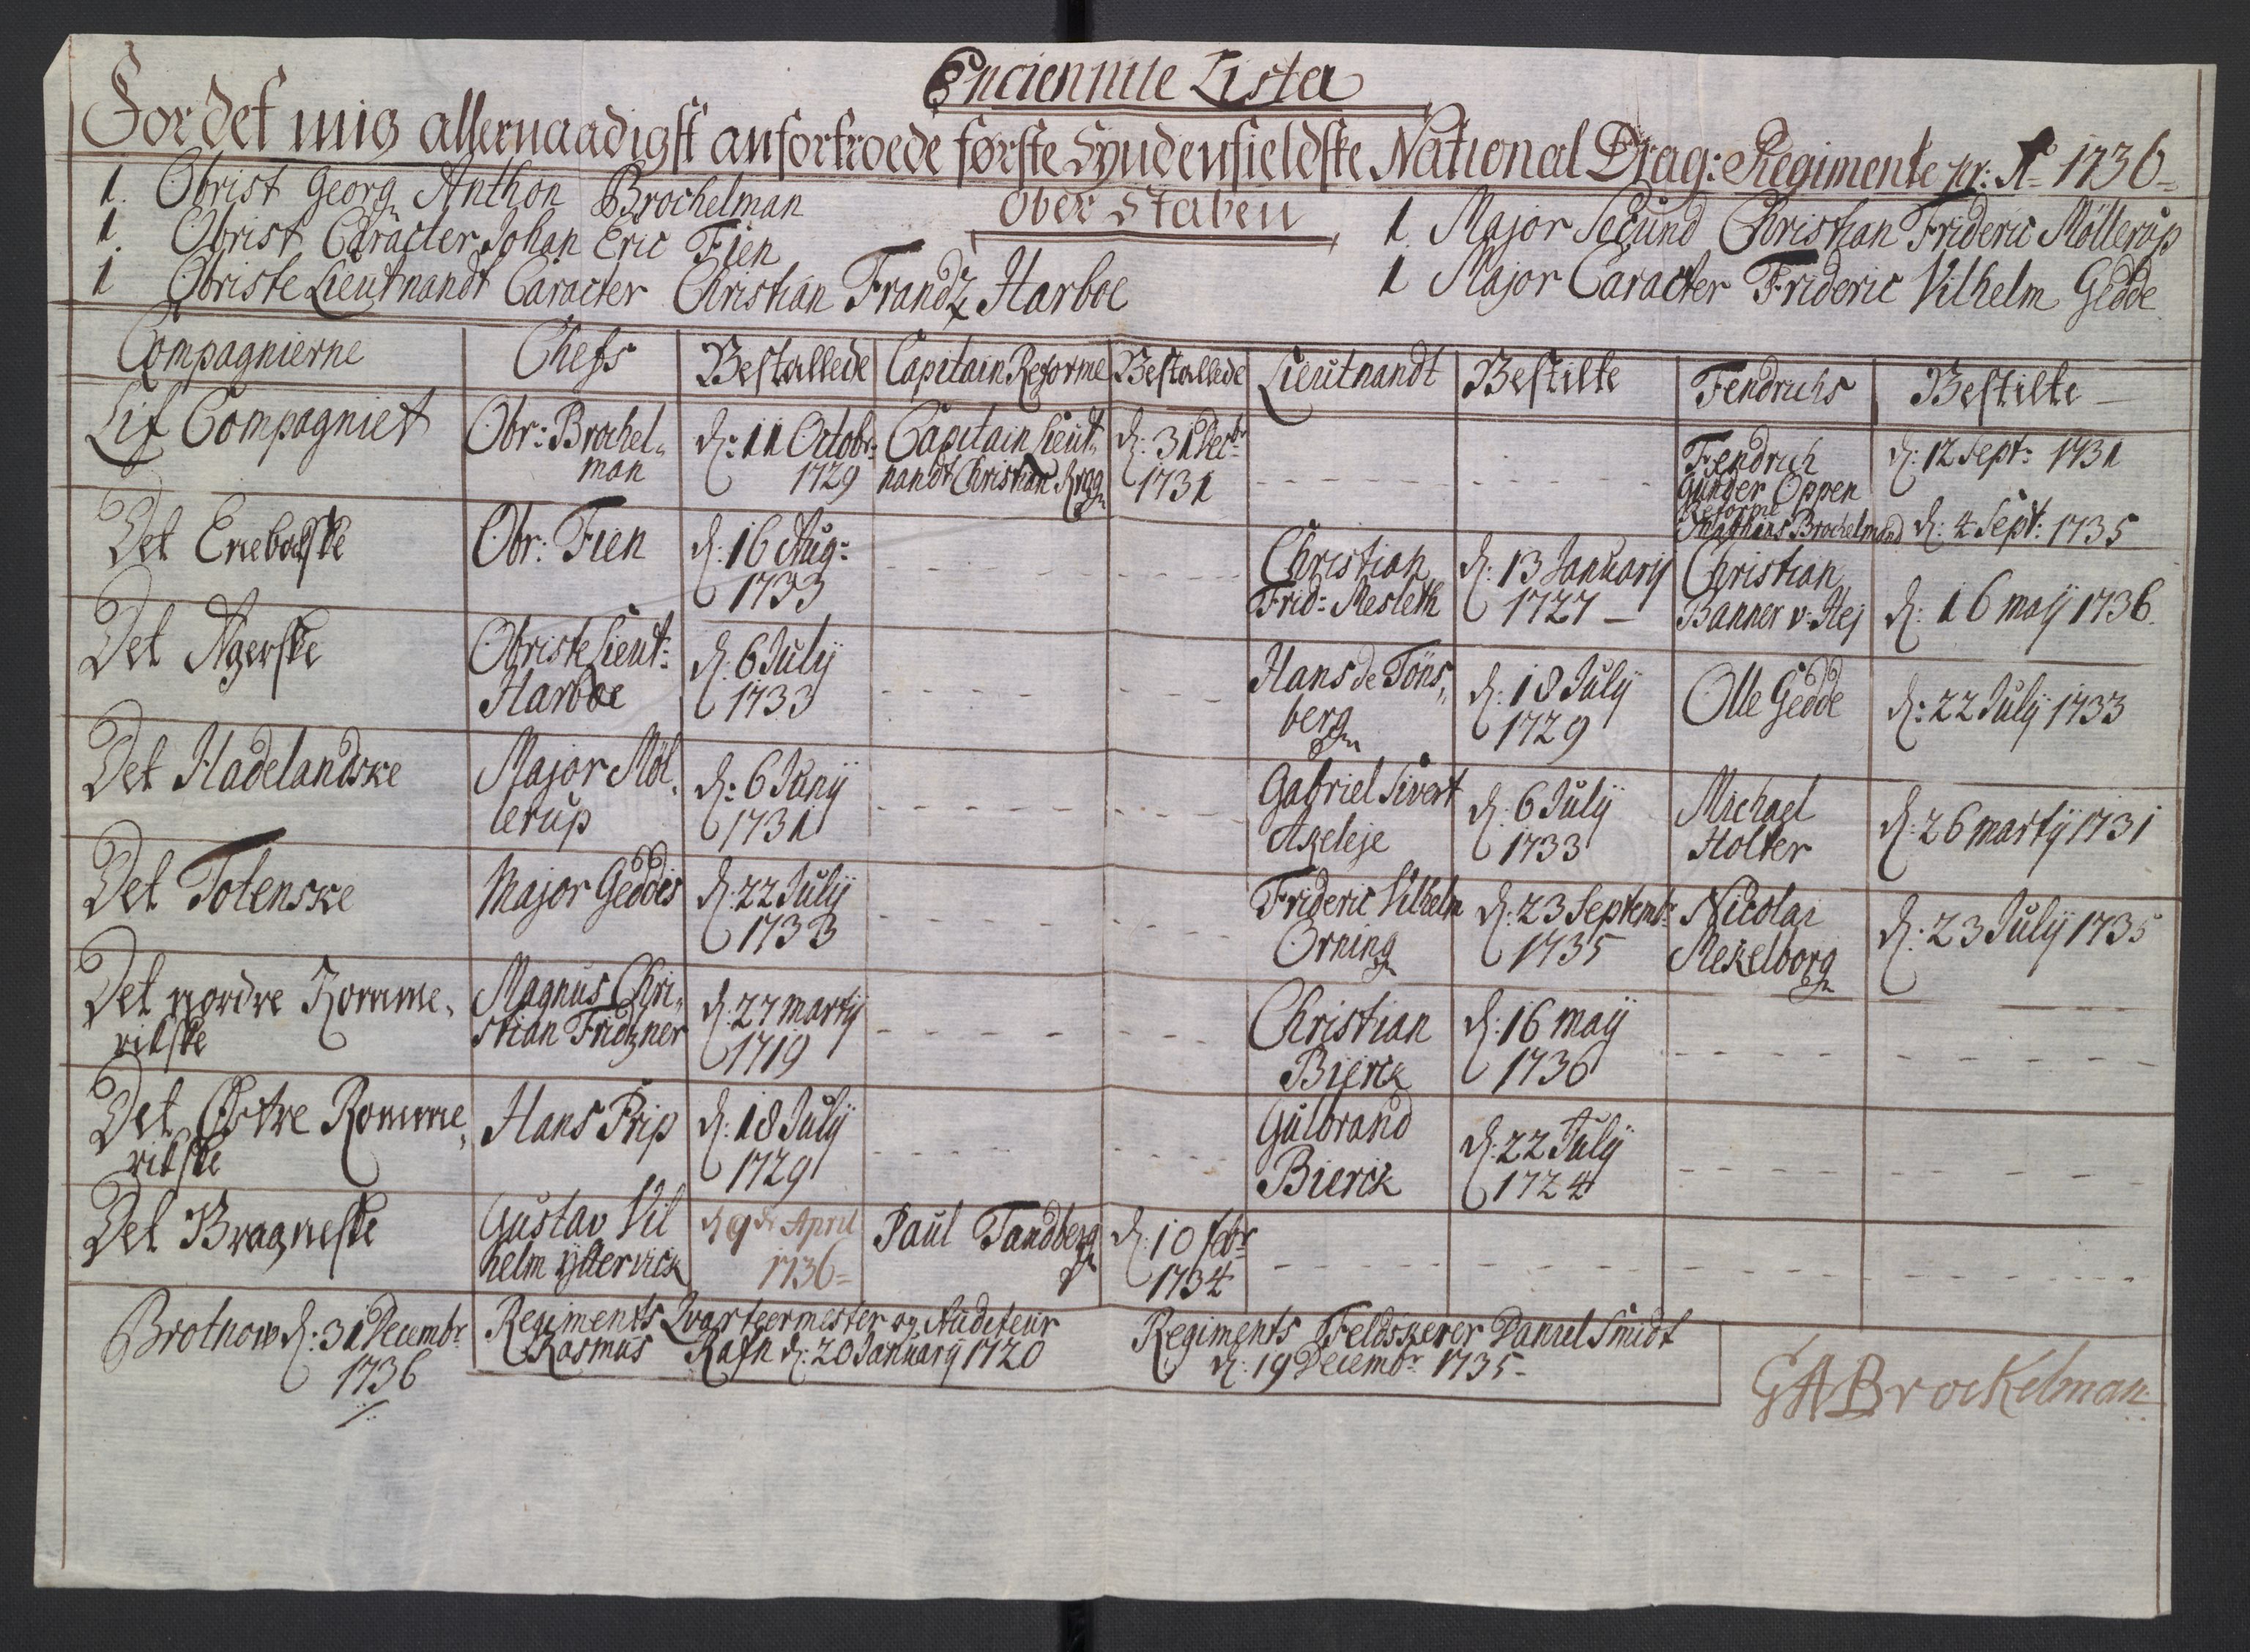 Enciennite Lista
For det mig allernaadigst anfortroede første Syndenfieldske National Drag: Regimente pr: Ao 1736
Ober Staben
1. Obrist Georg Anthon Brochelman
1. Obrist Caracter Johan Eric Fien
1 Obriste Lieutnandt Caracter Christian Frandz Harboe
1 Major Secund Christian Frideric Möllerup
1 Major Caracter Frideric Vilhelm Gedde
Compagnierne Chefs Bestallede Capitain Reforme Bestallede Lieutnandt Bestilte Fendrichs Bestilte
Lif Compagniet Obr: Brochel„ d: 11 Octobr: Capitain Lieut„ d: 31 Decbr Fendrich d: 12 Sept: 1731
man 1729 nandt Christian 1731 Gunder Oppen
Reforme
Mathias Brochelmand d: 4 Sept: 1735
Det Enebakske Obr: Fien d: 16 Aug: Christian d: 13 Januarij Christian d: 16 maij 1736.
1733 Frid: Mesleth 1727 Banner v. Hej
Det Agerske Obriste Lieut: d. 6 Julij Hans de Töns„ d: 18 Julij Olle Gedde d: 22 Julij 1733
Harboe 1733 berg 1729
Det Hadelandske Major Möl„ d: 6 Junij Gabriel Sivert d: 6 Julij Michael d: 26 martij 1731
lerup 1731 Akeleje 1733 Holter
Det Totenske Major Geddes d. 22 Julij Frideric Vilhelm d: 23 Septembr: Nicolai d: 23 Julij 1735
1733 Orning 1735 Mekelborg
Det nordre Romme„ Magnus Chri„ d: 27 martij Christian d: 16 maij
rikske stian Fridzner 1719 Bierck 1736
Det Østre Romme„ Hans Prip d: 18 Julij Gulbrand d: 22 Julij
rikske 1729 Bierck 1724
Det Bragneske Gustav Vil d 9de April Paul Tandberg d: 10 febr
helm ytterwick 1736 1734
Brotnow d: 31 Decembr: Regiments Qvarteermester og Auditeur Regiments Feldskerer Daniel Smidt
1736 Rasmus Rafn d: 20 Januarij 1720 d: 19 Decembr 1735
GABrockelman